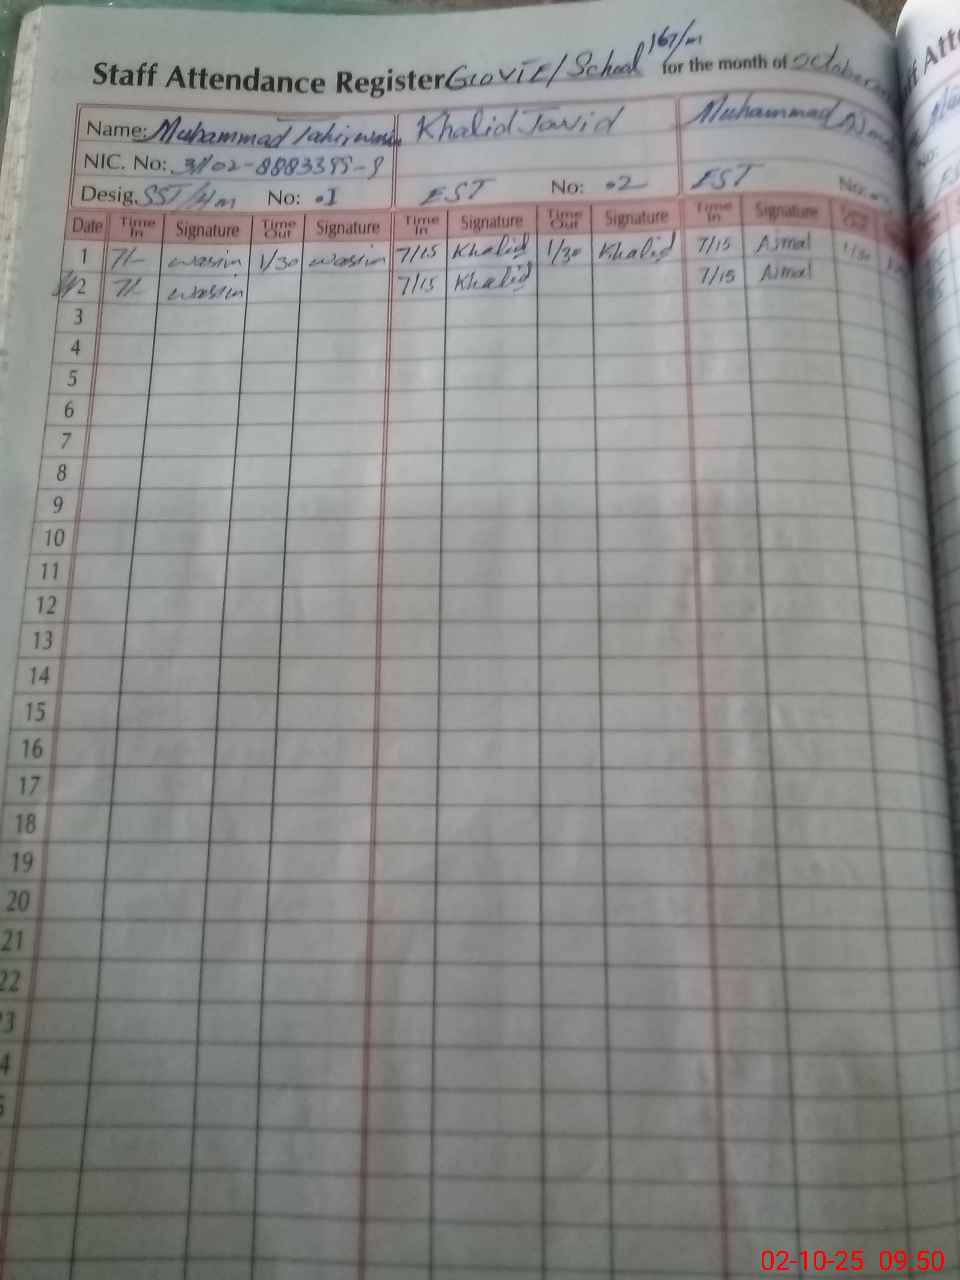 Staff Attendance Register Govt E/School 167/m for the month of October
Name: Muhammad Tahir wasim Khalid Javid Muhammad
NIC. No:
Desig. SST/Hm No: 01 EST No: 02 EST No:
Date Time In Signature Time Out Signature Time In Signature Time Out Signature Time In Signature Time Out
1 7/- wasim 1/30 wasim 7/15 Khalid 1/30 Khalid 7/15 Ajmal 1/30
2 7/- wasim 7/15 Khalid 7/15 Ajmal
3
4
5
6
7
8
9
10
11
12
13
14
15
16
17
18
19
20
21
22
02-10-25 09:50